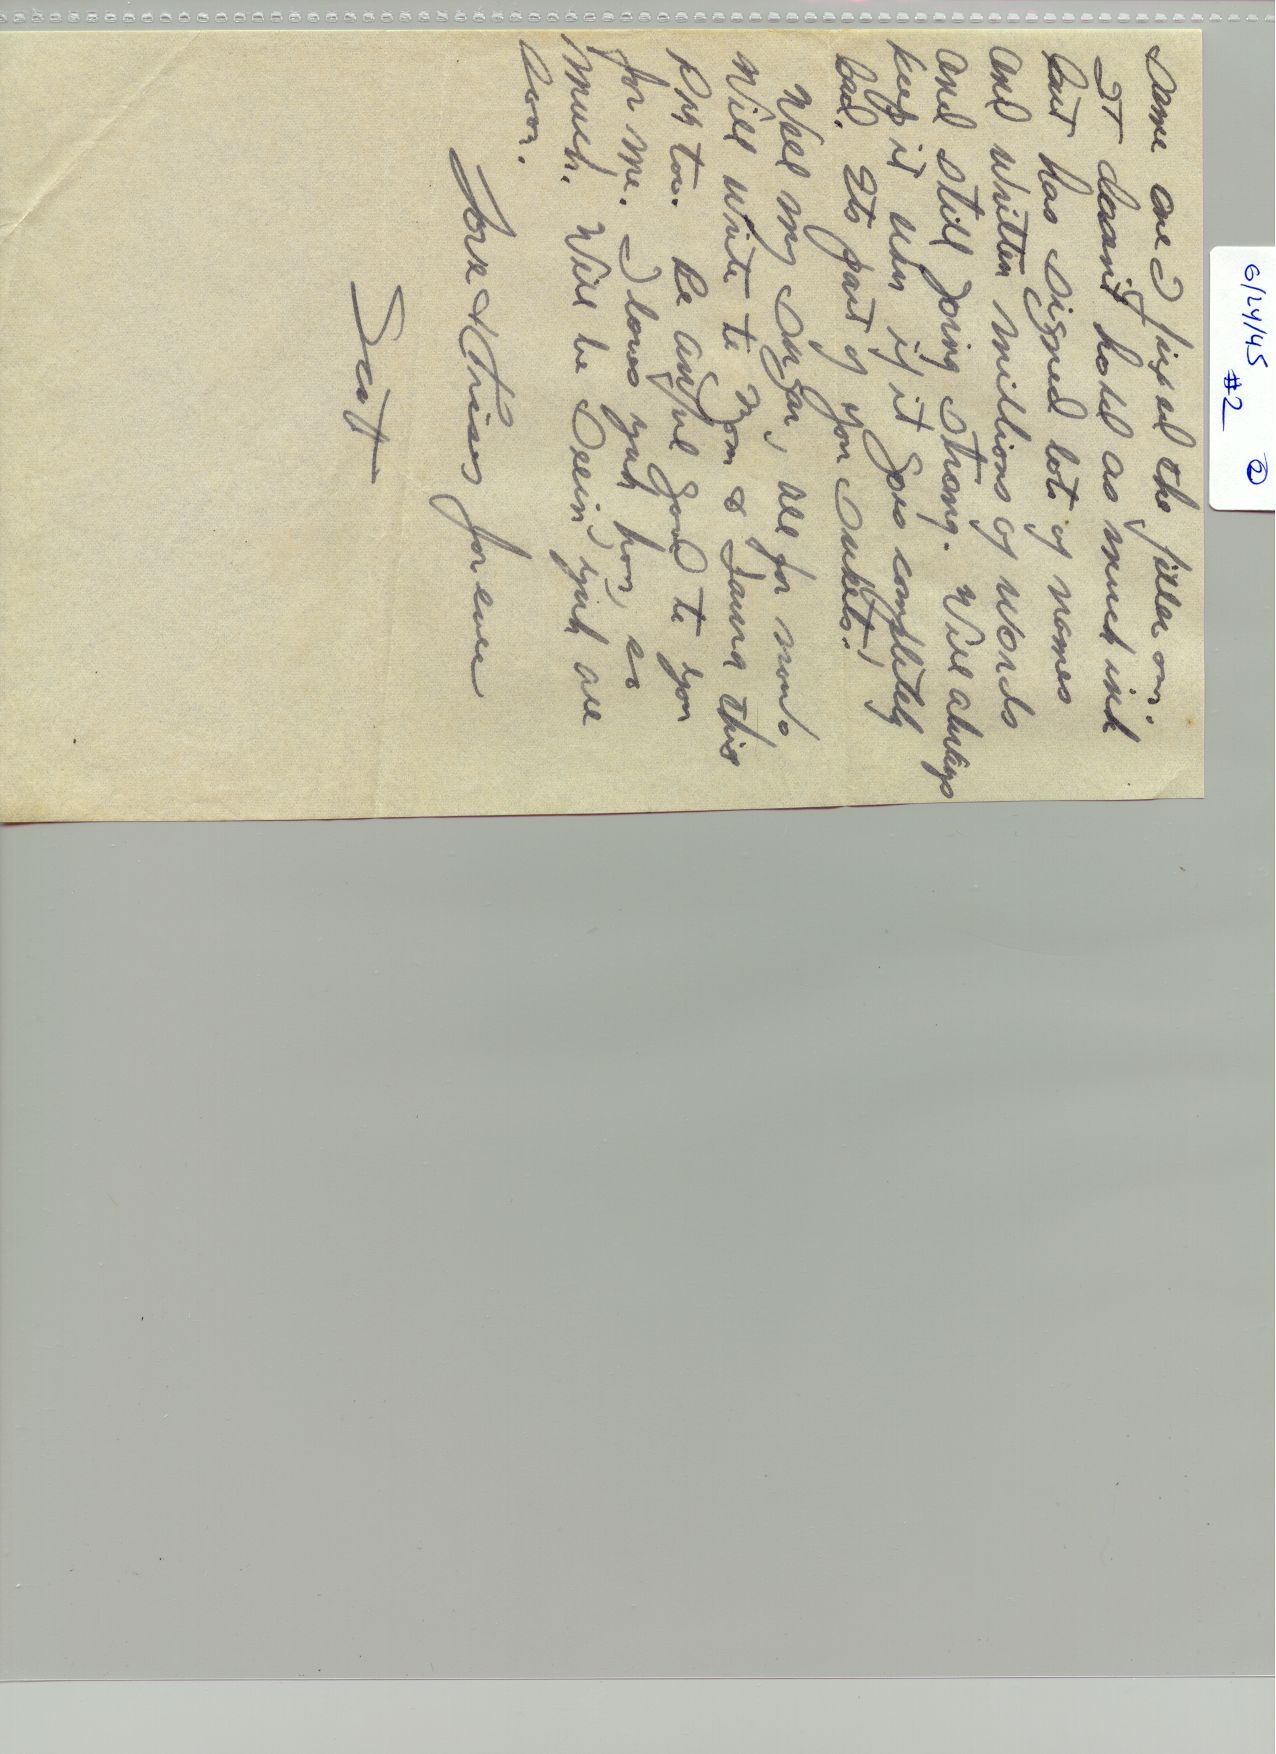 6/24/45
#2 2
same one I fixed the filler on.
It doesn't hold as much ink
but has signed lots of names
and written millions of words
and still going strong. Will always
keep it even if it goes completely
bad. Its part of you Sweets!
Well my Sugar, all for now.
Will write to Mom & this
Pay too. Be awful good to you
for me. I loves yuh hon, so
much. Will be seein' yuh awe
Soon.
Love & Kisses forever
Scott